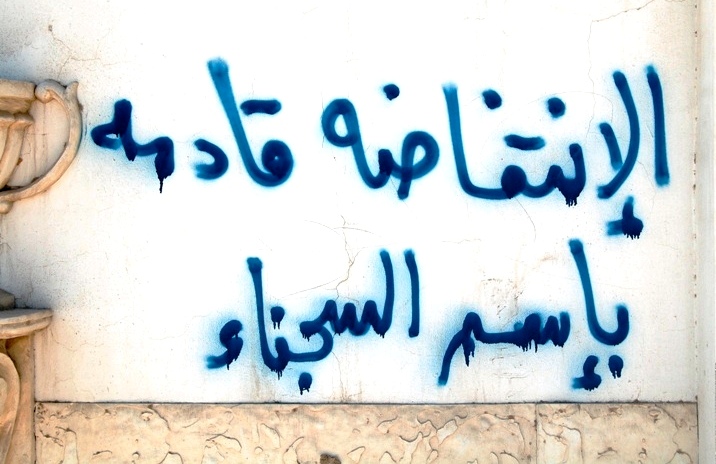 الإنتفاضه قادمه
بإسم السجناء